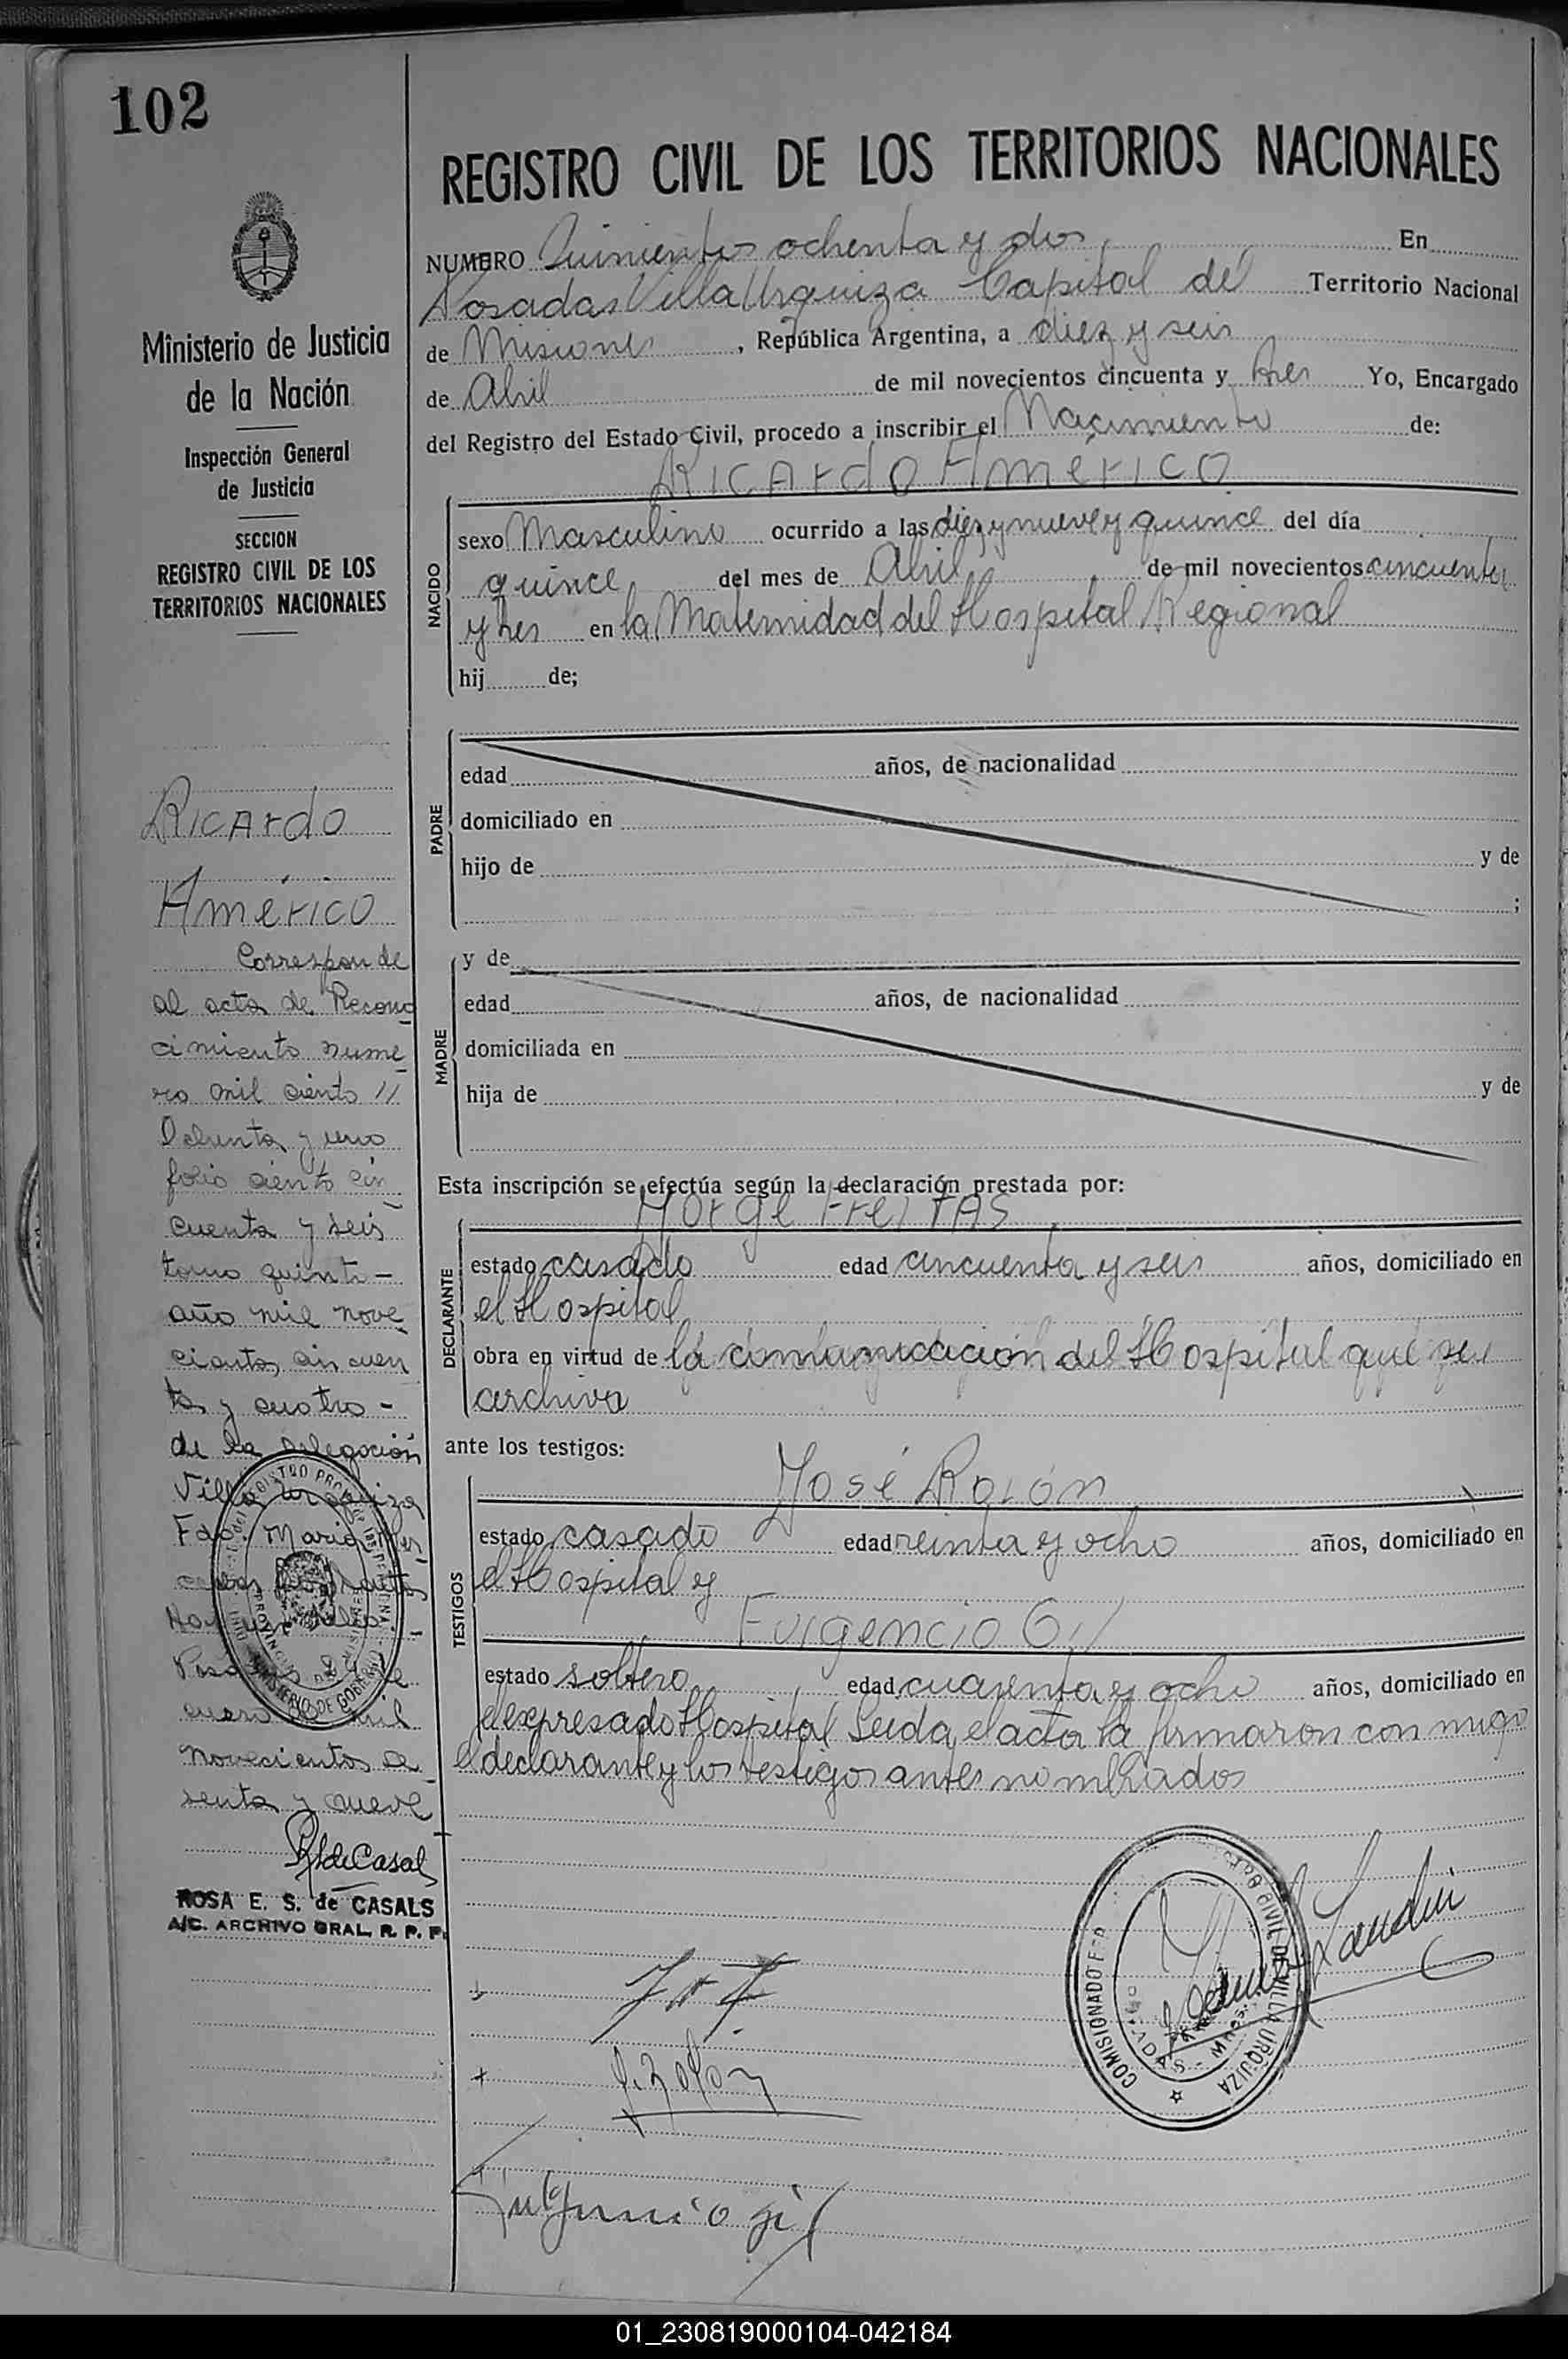 102
REGISTRO CIVIL DE LOS TERRITORIOS NACIONALES
Ministerio de Justicia
de la Nación
Inspección General
de Justicia
SECCION
REGISTRO CIVIL DE LOS
TERRITORIOS NACIONALES
Ricardo
Américo
Corresponde
al acta de Recono
cimiento núme
ro mil ciento //
Ochenta y uno
folio ciento cin
cuenta y seis
tomo quinto -
año mil nove
cientos cincuen
ta y cuatro -
de la Delegación
Villa Urquiza
Fdo. Maria Mer
Posadas
enero de mil
novecientos se
senta y nueve
R de Casals
ROSA E. S. de CASALS
A/C. ARCHIVO GRAL. R. P. P.
NUMERO Quinientos ochenta y dos, En
Posadas Villa Urquiza Capital del Territorio Nacional
de Misiones, República Argentina, a diez y seis
de Abril de mil novecientos cincuenta y tres Yo, Encargado
del Registro del Estado Civil, procedo a inscribir el Nacimiento de:
Ricardo Américo
NACIDO
sexo Masculino ocurrido a las diez y nueve y quince del día
quince del mes de Abril de mil novecientos cincuenta
y tres en la Maternidad del Hospital Regional
hij de;
PADRE
edad años, de nacionalidad
domiciliado en
hijo de y de
;
MADRE
y de
edad años, de nacionalidad
domiciliada en
hija de y de
Esta inscripción se efectúa según la declaración prestada por:
DECLARANTE
Jorge Freitas,
estado casado edad cincuenta y seis años, domiciliado en
el Hospital
obra en virtud de la comunicación del Hospital que se
archiva
ante los testigos:
TESTIGOS
José Rolón
estado casado edad treinta y ocho años, domiciliado en
el Hospital y
Fulgencio Gil
estado soltero edad cuarenta y ocho años, domiciliado en
el expresado Hospital Leida el acta la firmaron conmigo
el declarante y los testigos antes nombrados
J. Rolón
Fulgencio gil
COMISIONADO
REGISTRO CIVIL DE VILLA URQUIZA
POSADAS - Mnes.
01_230819000104-042184